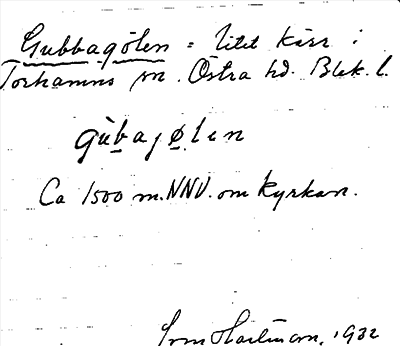 Gubbagölen = litet kärr i
Torhamns sn. Östra hd. Blek. l.
gùbajølen
Ca 1500 m. NNV. om kyrkan.
Hartman, 1932